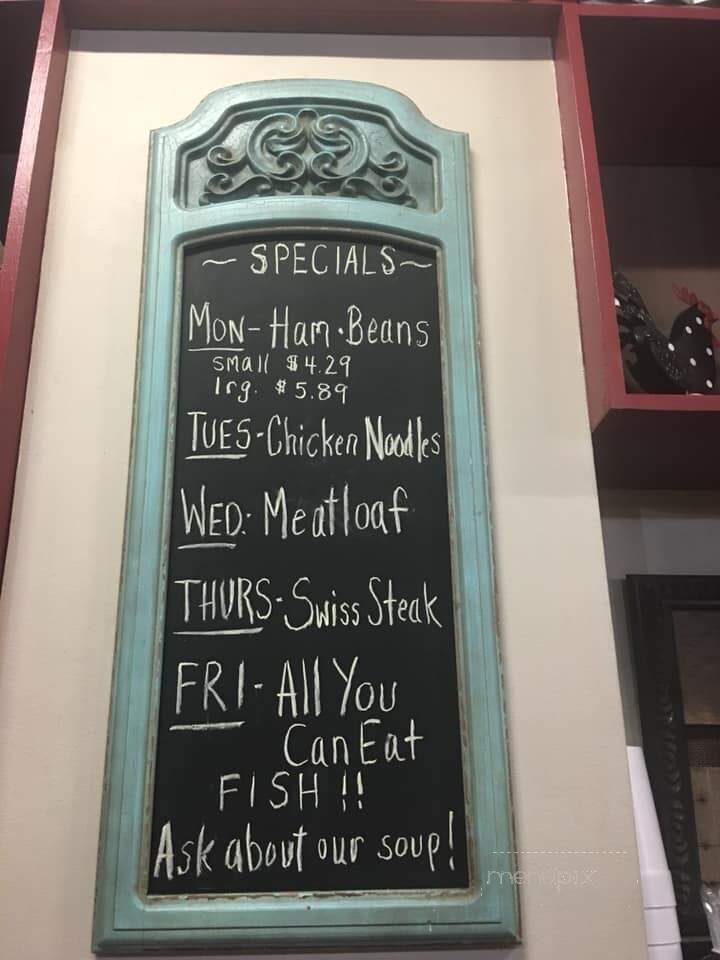 ~ SPECIALS ~
MON - Ham · Beans
small $4.29
lrg. $5.89
TUES - Chicken Noodles
WED: Meatloaf
THURS - Swiss Steak
FRI - All You
Can Eat
FISH !!
Ask about our soup!
menupix